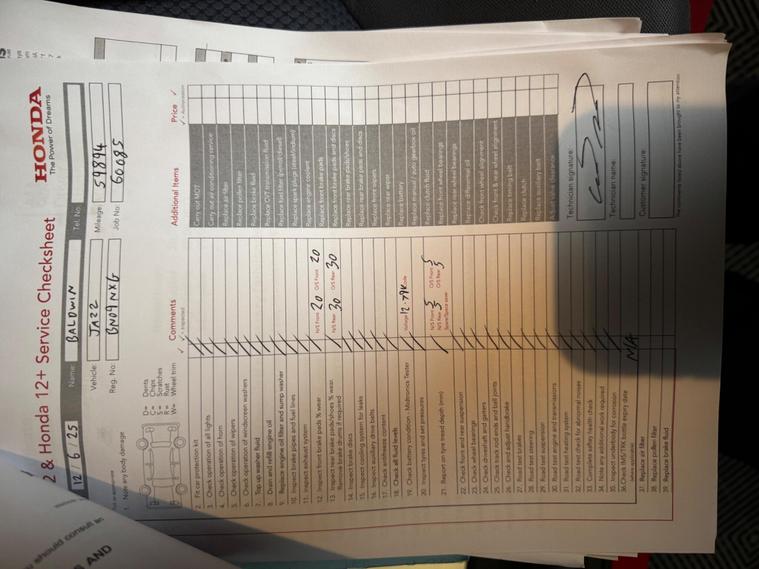 2 & Honda 12+ Service Checksheet
HONDA
The Power of Dreams
12/6/25
Name: BALDWIN
Tel. No:
Vehicle: JAZZ
Mileage: 59894
Reg. No: BN09NXG
Job No: 60085
1. Note any body damage
D = Dents
C = Chips
S = Scratches
R = Rust
W = Wheel trim
Comments
Additional Items
Price
2. Fit car protection kit
3. Check operation of all lights
4. Check operation of horn
5. Check operation of wipers
6. Check operation of windscreen washers
7. Top up washer fluid
8. Drain and refill engine oil
9. Replace engine oil filter and sump washer
10. Inspect brake pipes and fuel lines
11. Inspect exhaust system
12. Inspect front brake pads % wear
N/S Front 20 O/S Front 20
13. Inspect rear brake pads/shoes % wear.
Remove brake drums if required
N/S Rear 30 O/S Rear 30
14. Inspect brake discs
15. Inspect cooling system for leaks
16. Inspect auxiliary drive belts
17. Check antifreeze content
18. Check all fluid levels
19. Check battery condition - Midtronics Tester
Voltage 12.79V
20. Inspect tyres and set pressures
21. Report on tyre tread depth (mm)
N/S Front 5 O/S Front 5
N/S Rear 5 O/S Rear 5
22. Check front and rear suspension
23. Check wheel bearings
24. Check driveshaft and gaiters
25. Check track rod ends and ball joints
26. Check/adjust handbrake
27. Road test brakes
28. Road test steering
29. Road test suspension
30. Road test engine and transmissions
31. Road test heating system
32. Road test check for abnormal noises
33. Complete safety health check
34. Note any additional work required
35. Inspect underbody for corrosion
36. Check IMS/TRK bottle expiry date
N/A
37. Replace air filter
38. Replace pollen filter
39. Replace brake fluid
Carry out MOT
Carry out air conditioning service
Replace air filter
Replace pollen filter
Replace brake fluid
Replace CVT transmission fluid
Replace front brake pads
Replace front brake pads and discs
Replace rear brake pads/shoes
Replace rear brake pads and discs
Replace front wipers
Replace rear wiper
Replace battery
Replace manual / auto gearbox oil
Replace clutch fluid
Replace front wheel bearings
Replace rear wheel bearings
Replace differential oil
Check front wheel alignment
Check front & rear wheel alignment
Technician signature:
Technician name:
Customer signature:
The comments listed above have been brought to my attention
should consult an
AND